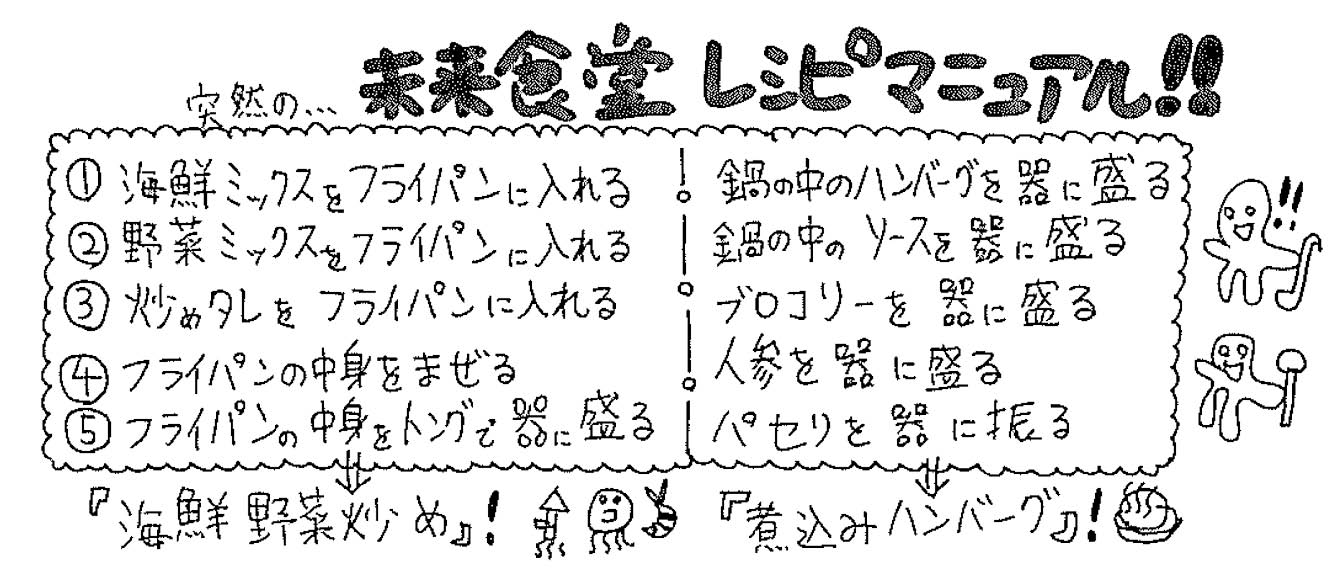 突然の… 未来食堂 レシピマニュアル!!
① 海鮮ミックスをフライパンに入れる
② 野菜ミックスをフライパンに入れる
③ 炒めタレをフライパンに入れる
④ フライパンの中身をまぜる
⑤ フライパンの中身をトングで器に盛る
『海鮮野菜炒め』!
鍋の中のハンバーグを器に盛る
鍋の中のソースを器に盛る
ブロコリーを器に盛る
人参を器に盛る
パセリを器に振る
『煮込みハンバーグ』!
!!